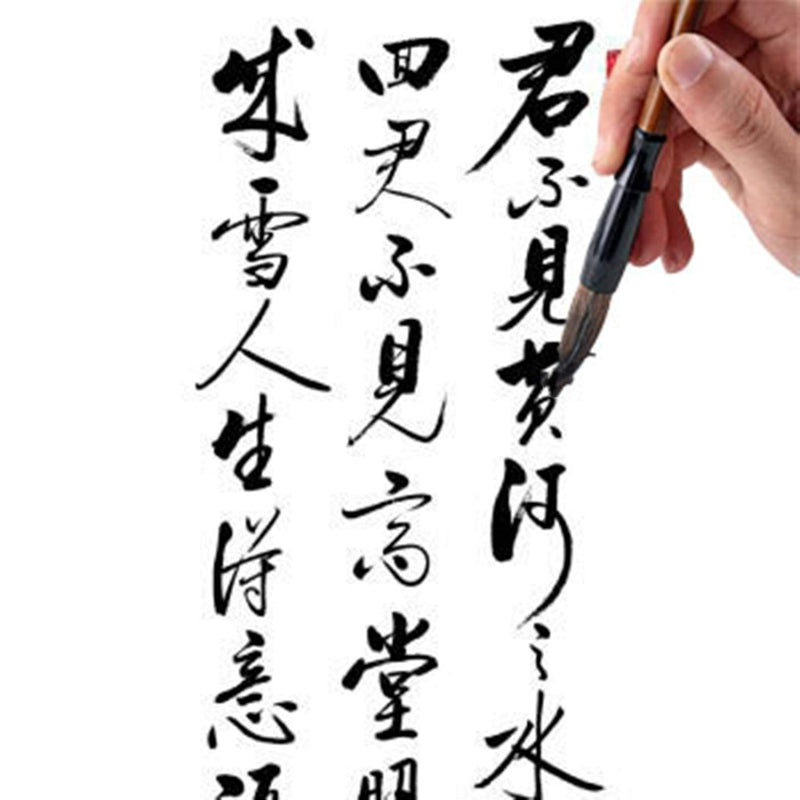 君不見黄河之水
回君不見高堂明
成雪人生得意須